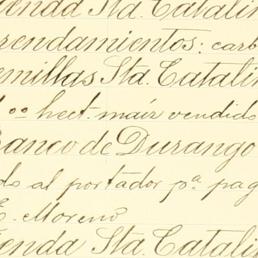 enda Sta. Catalin
rrendamientos: carb
emillas Sta. Catalin
1 00 hect. maíz vendido
Banco de Durango
do al portador pª pag
E. Moreno
ienda Sta. Catali